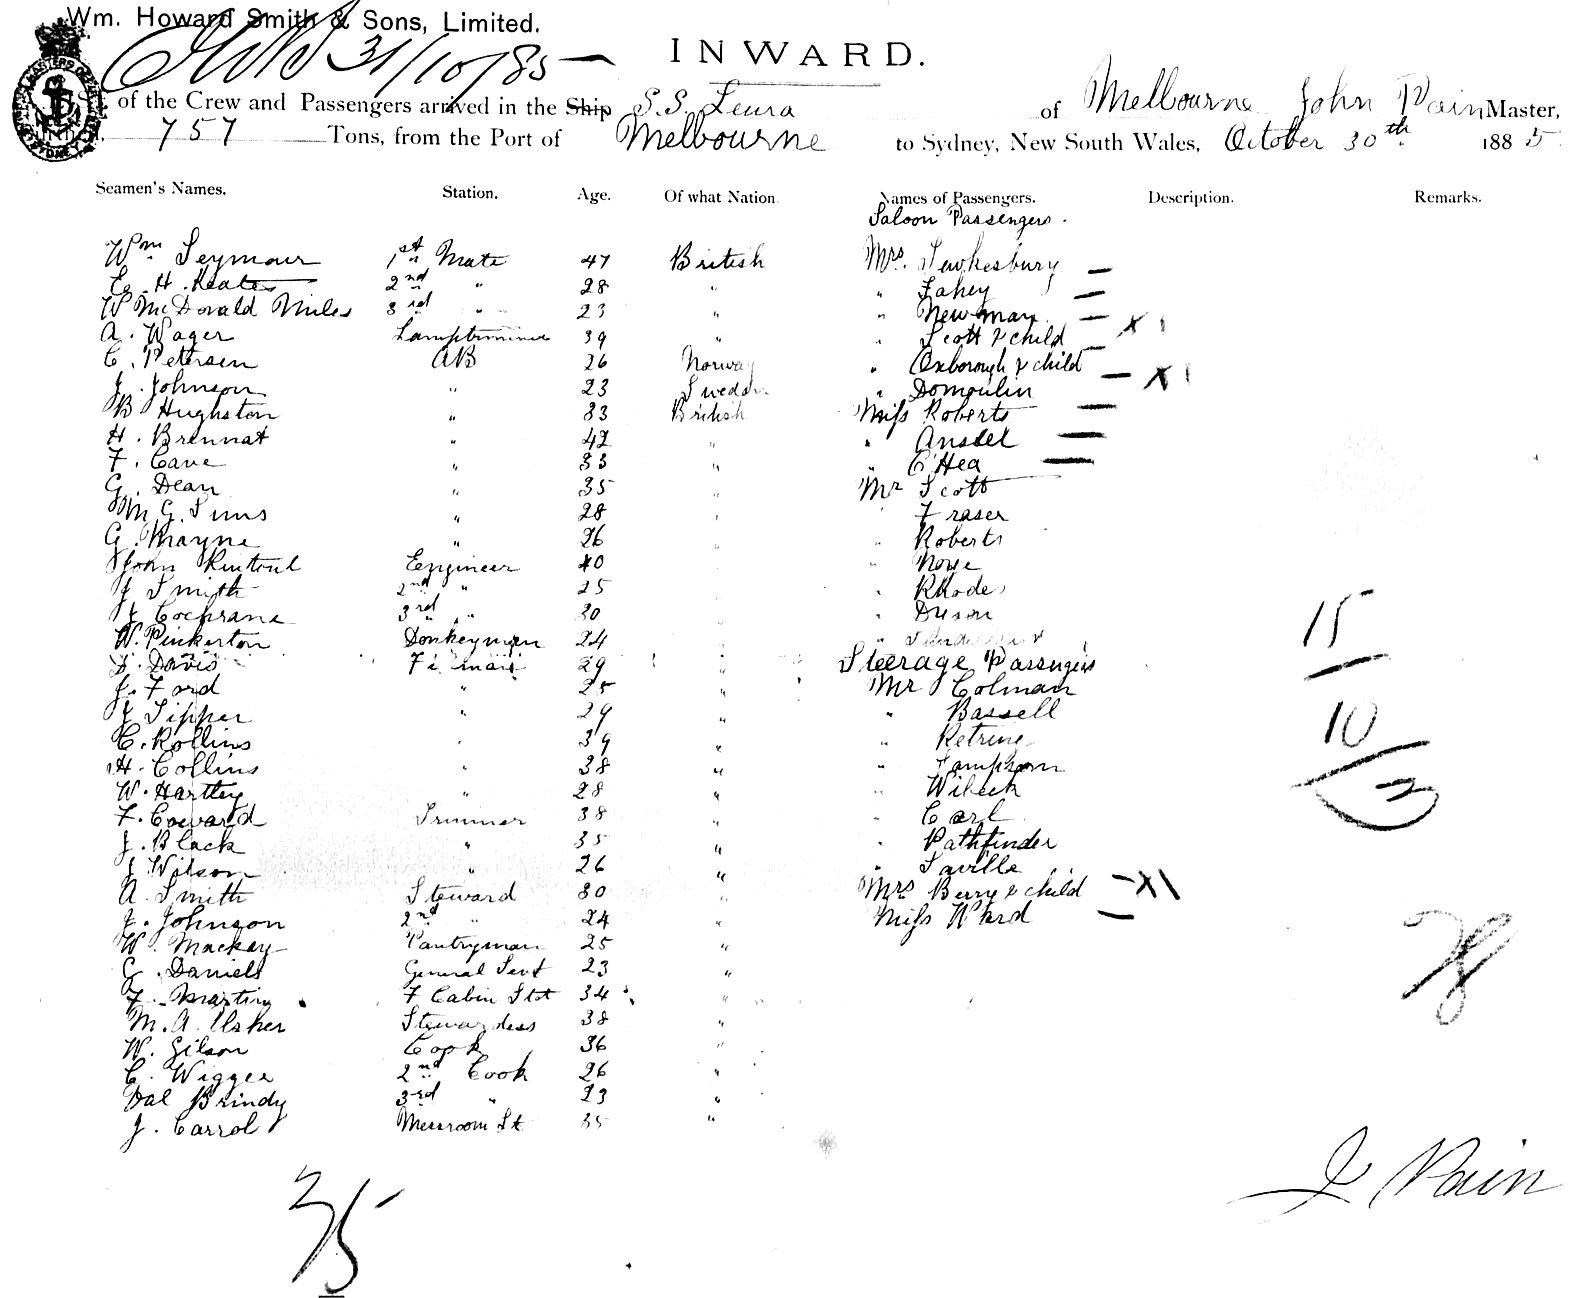 Wm. Howard Smith & Sons, Limited.
31/10/85
INWARD.
of the Crew and Passengers arrived in the Ship S.S. Leura of Melbourne John Pain Master,
757 Tons, from the Port of Melbourne to Sydney, New South Wales, October 30th 1885.
Seamen's Names. Station. Age. Of what Nation. Names of Passengers. Description. Remarks.
Saloon Passengers.
Wm Seymour 1st Mate 47 British Mrs. Tewkesbury
E. H. Keates 2nd " 28 " " Fahey
W McDonald Miles 3rd " 23 " " Newman
A. Wager Lamptrimmer 39 " " Scott & child
C. Petersen AB 26 Norway " Oxborough & child
J. Johnson " 23 Sweden " Domoulin
B Hughston " 33 British Miss Roberts
H. Brennat " 42 " " Ansdel
F. Cave " 33 " " O'Hea
G. Dean " 35 " Mr Scott
M. G. Sims " 28 " Fraser
G. Mayne " 26 " " Roberts
John Rintoul Engineer 40 "
J Smith 2nd " 25 " Rhodes
J Cochrane 3rd " 30 " "
W. Pinkerton Donkeyman 24 "
Davis Fireman 29 " Steerage Passengers
J. Ford " 25 " Mr Colman
J Tipper " 29 " " Bassell
C. Rollins " 39 " " Retrine
H. Collins " 38 " " Sampson
W. Hartley " 28 " " Wibeck
F. Coward Trimmer 38 " " Carl
J. Black " 35 " " Pathfinder
J Wilson " 26 " " Saville
A. Smith Steward 30 " Mrs Berry & child
J. Johnson 2nd " 24 " Miss Ward
W. Mackay Pantryman 25 "
G. Daniels General Servt 23 "
F. Martin F Cabin Stdt 34 "
M. A. Usher Stewardess 38 "
W. Gilson Cook 36 "
C. Wigger 2nd Cook 26 "
Dal Brindy 3rd " 23 "
J. Carrol Messroom St 35 "
15
10
J Pain
35